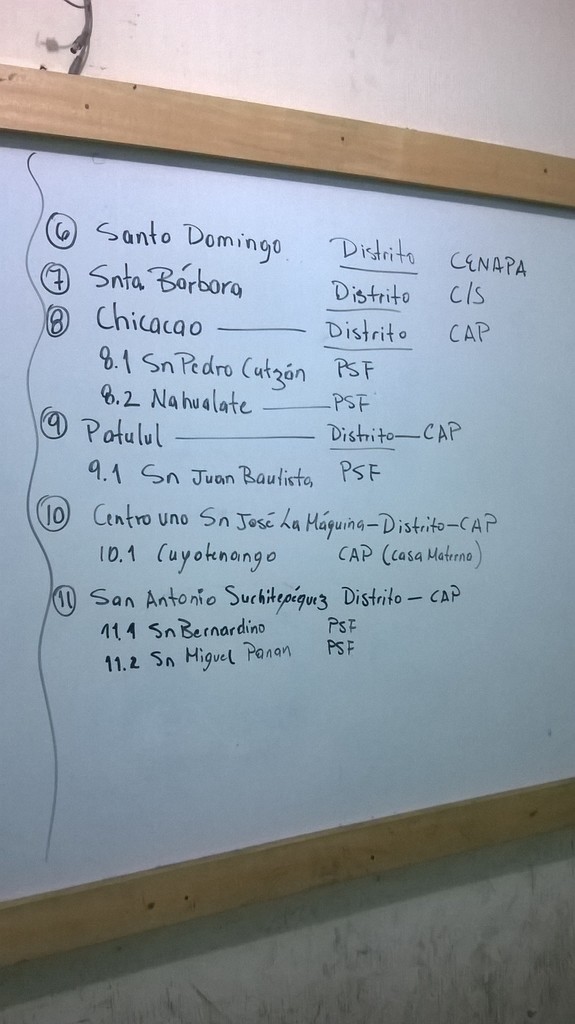 6 Santo Domingo Distrito CENAPA
7 Snta Bárbara Distrito C/S
8 Chicacao Distrito CAP
8.1 Sn Pedro Cutzán PSF
8.2 Nahualate PSF
9 Patulul Distrito — CAP
9.1 Sn Juan Bautista PSF
10 Centro uno Sn José La Máquina - Distrito - CAP
10.1 Cuyotenango CAP (Casa Materno)
11 San Antonio Suchitepéquez Distrito — CAP
11.1 Sn Bernardino PSF
11.2 Sn Miguel Panan PSF